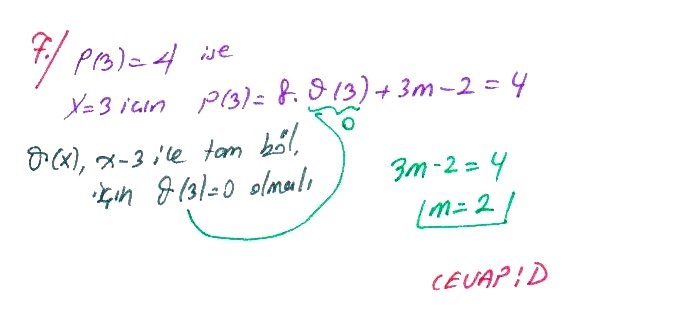 7./ P(3)=4 ise
X=3 için P(3)=8.Q(3)+3m-2=4
0
Q(x), x-3 ile tam böl.
için Q(3)=0 olmalı
3m-2=4
m=2
CEVAP:D